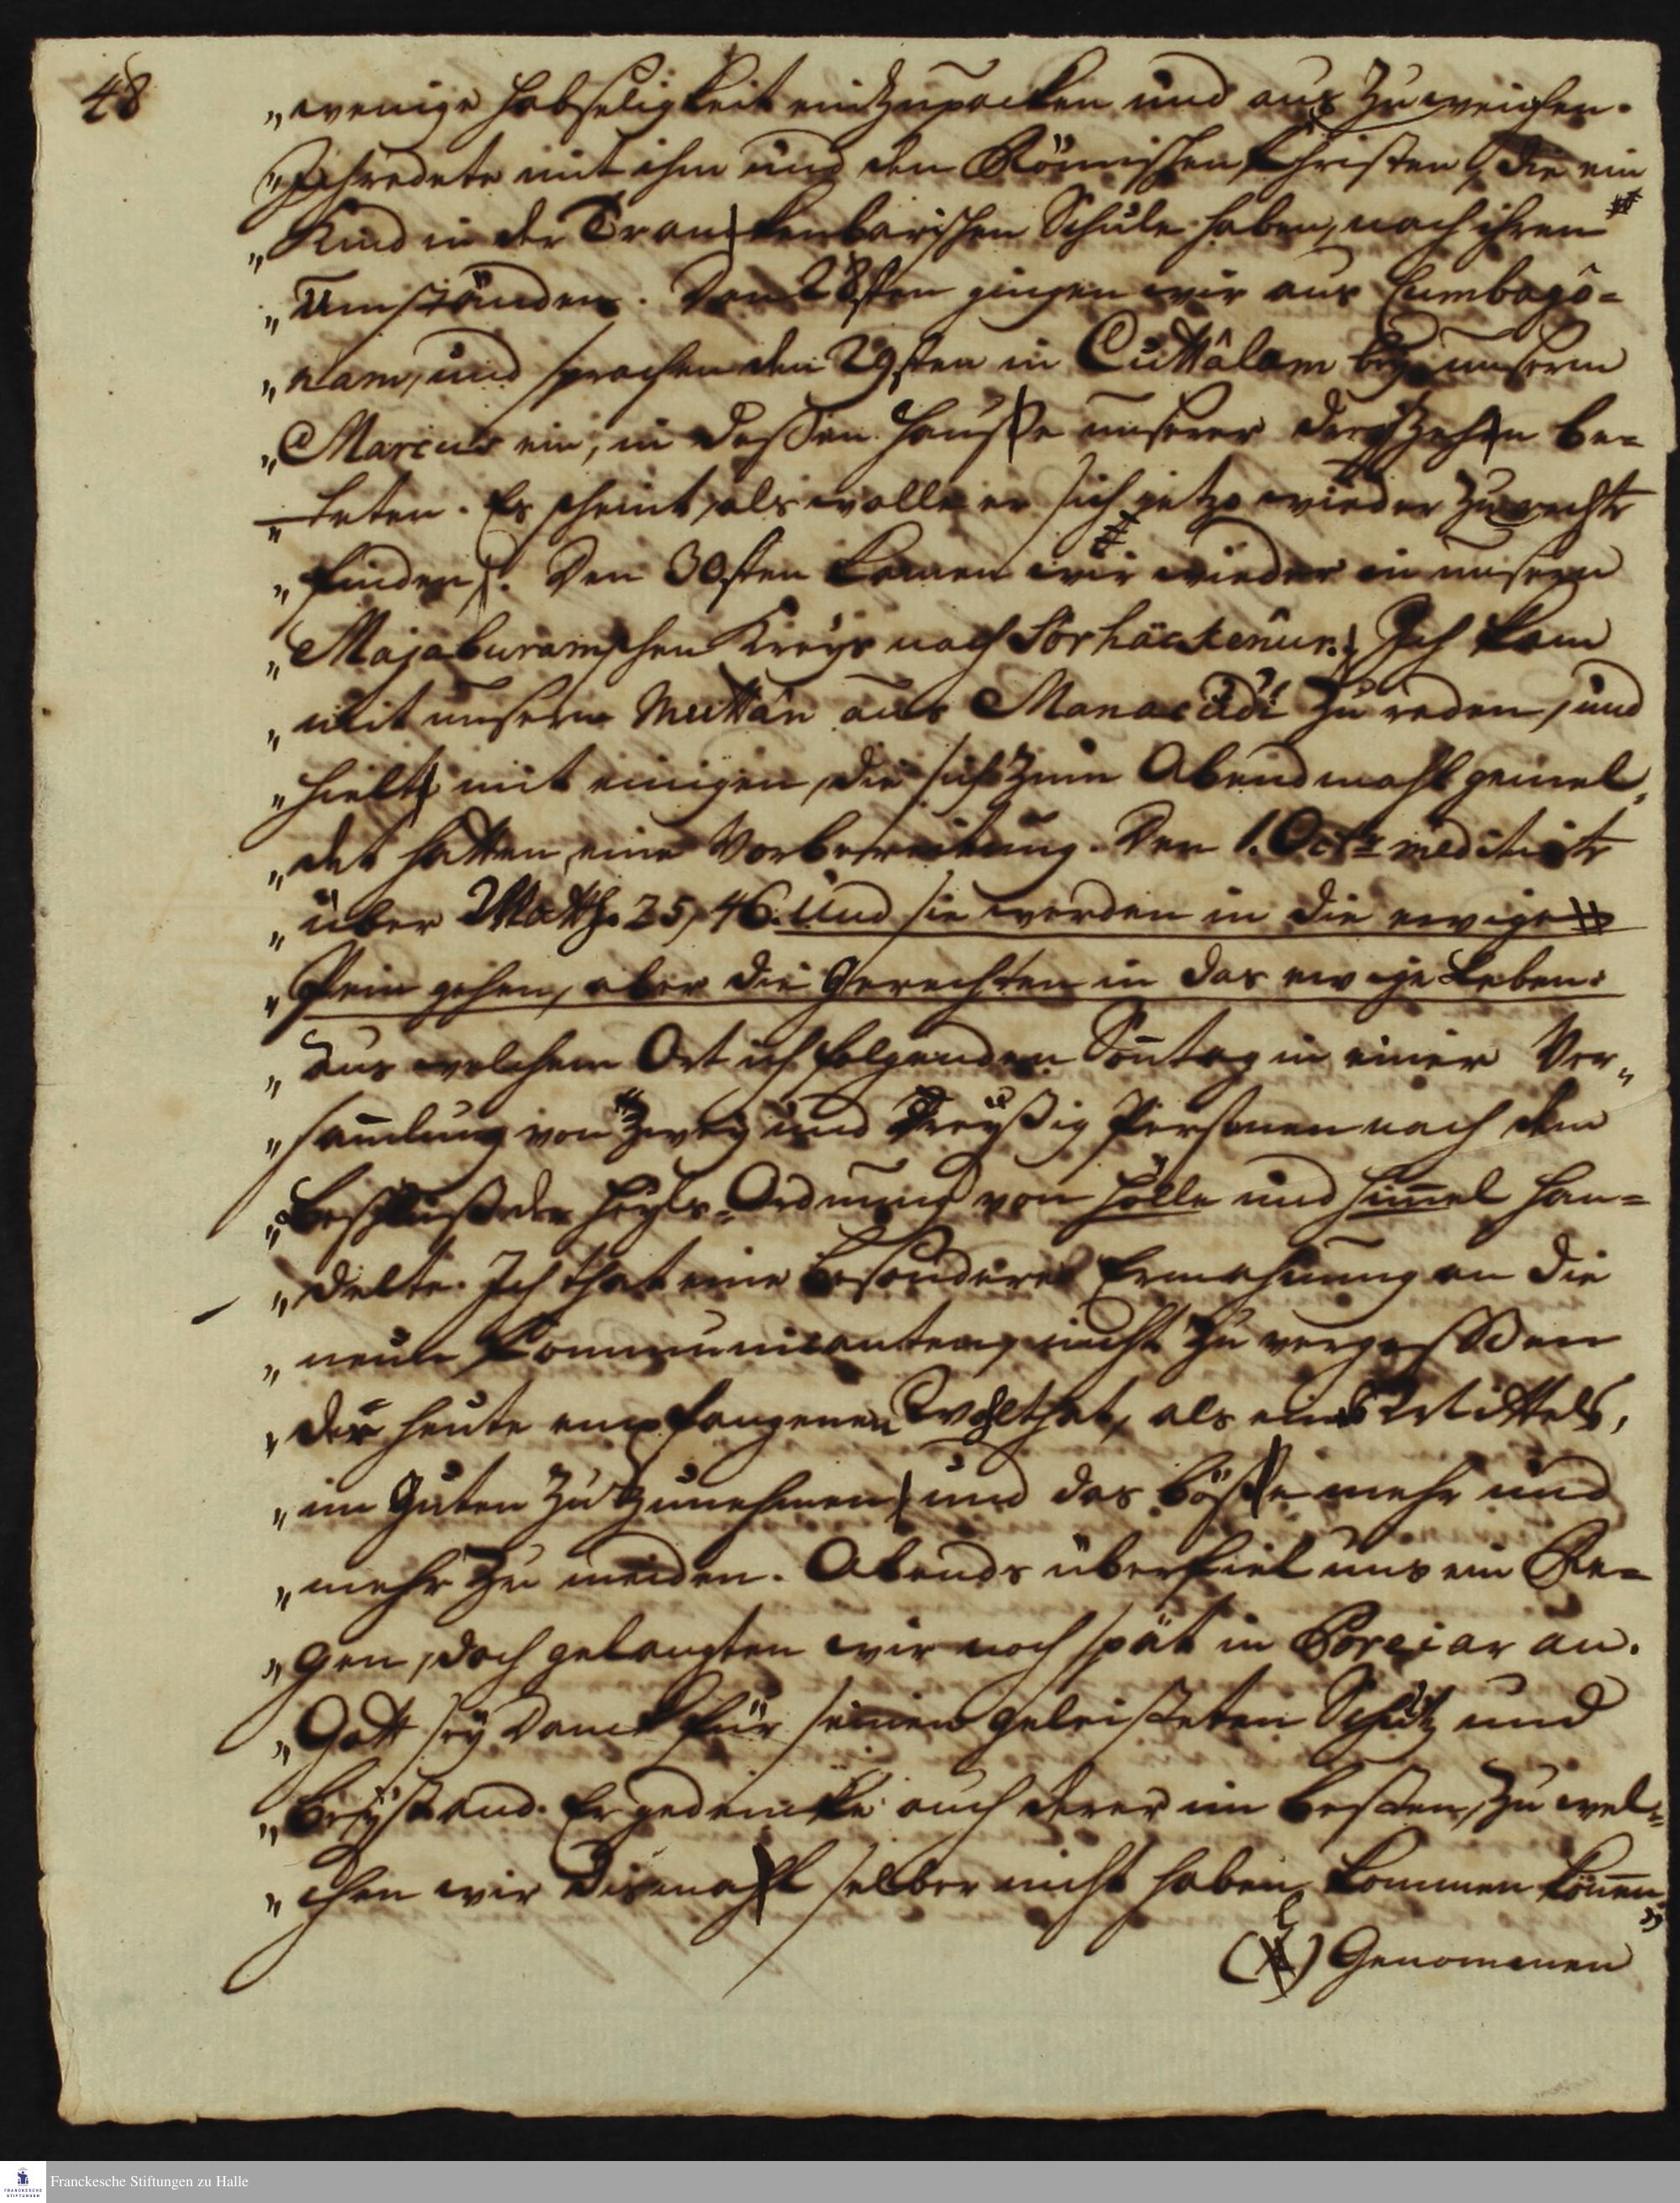 48
„wenige Habseligkeit einzupacken und auszuweichen.
„Ich redete mit ihm und den Römischen Christen, die ein
„Kind in der Trankenbarischen Schule haben, nach ihren
„Umständen. Den 28sten gingen wir aus Cumbagô=
„nam, und sprachen den 29sten in Cuttâlam bey unserm
„Marcus ein, in deßen Hause unserer dreyzehn be=
„teten. Es scheint, als wolle er sich jetzo wieder zurechte
„finden. Den 30sten kamen wir wieder in unsern
„Majaburamschen Kreys nach Sorhäckenûr. Ich kam
„mit unserm Muttân aus Manacüdi zu reden, und
„hielt mit einigen, die sich zum Abendmahl gemel„
„det hatten, eine Vorbereitung. Den 1. Octr meditirte
„über Matth. 25, 46. Und sie werden in die ewige
„Pein gehen, aber die Gerechten in das ewige Leben:
„aus welchem Ort ich folgenden Sontag in einer Ver„
„samlung von zwey und dreyßig Personen nach dem
„Beschluß der Heyls-Ordnung von Hölle und Himel han=
„delte. Ich that eine besondere Ermahnung an die
„neuen Communicanten, nicht zu vergeßen
„der heute empfangenen Wohlthat, als eines Mittels,
„im Guten zuzunehmen und das Böse mehr und
„mehr zu meiden. Abends überfiel uns ein Re=
„gen, doch gelangten wir noch spät in Poreiar an.
„Gott sey Danck für seinen geleisteten Schutz und
„Beystand. Er gedencke auch derer im Besten, zu wel=
„chen wir dismahl selber nicht haben kommen könen„
( ) Genommen
Franckesche Stiftungen zu Halle
FRANCKESCHE
STIFTUNGEN